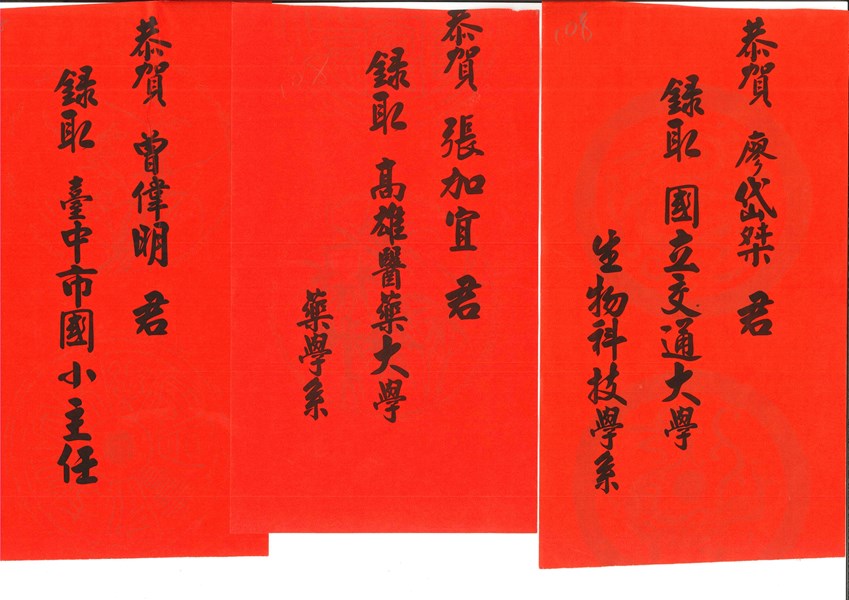 恭賀 廖岱桀 君
録取 國立交通大學
生物科技學系
恭賀 張加宜 君
録取 高雄醫藥大學
藥學系
恭賀 曾偉明 君
録取 臺中市國小主任